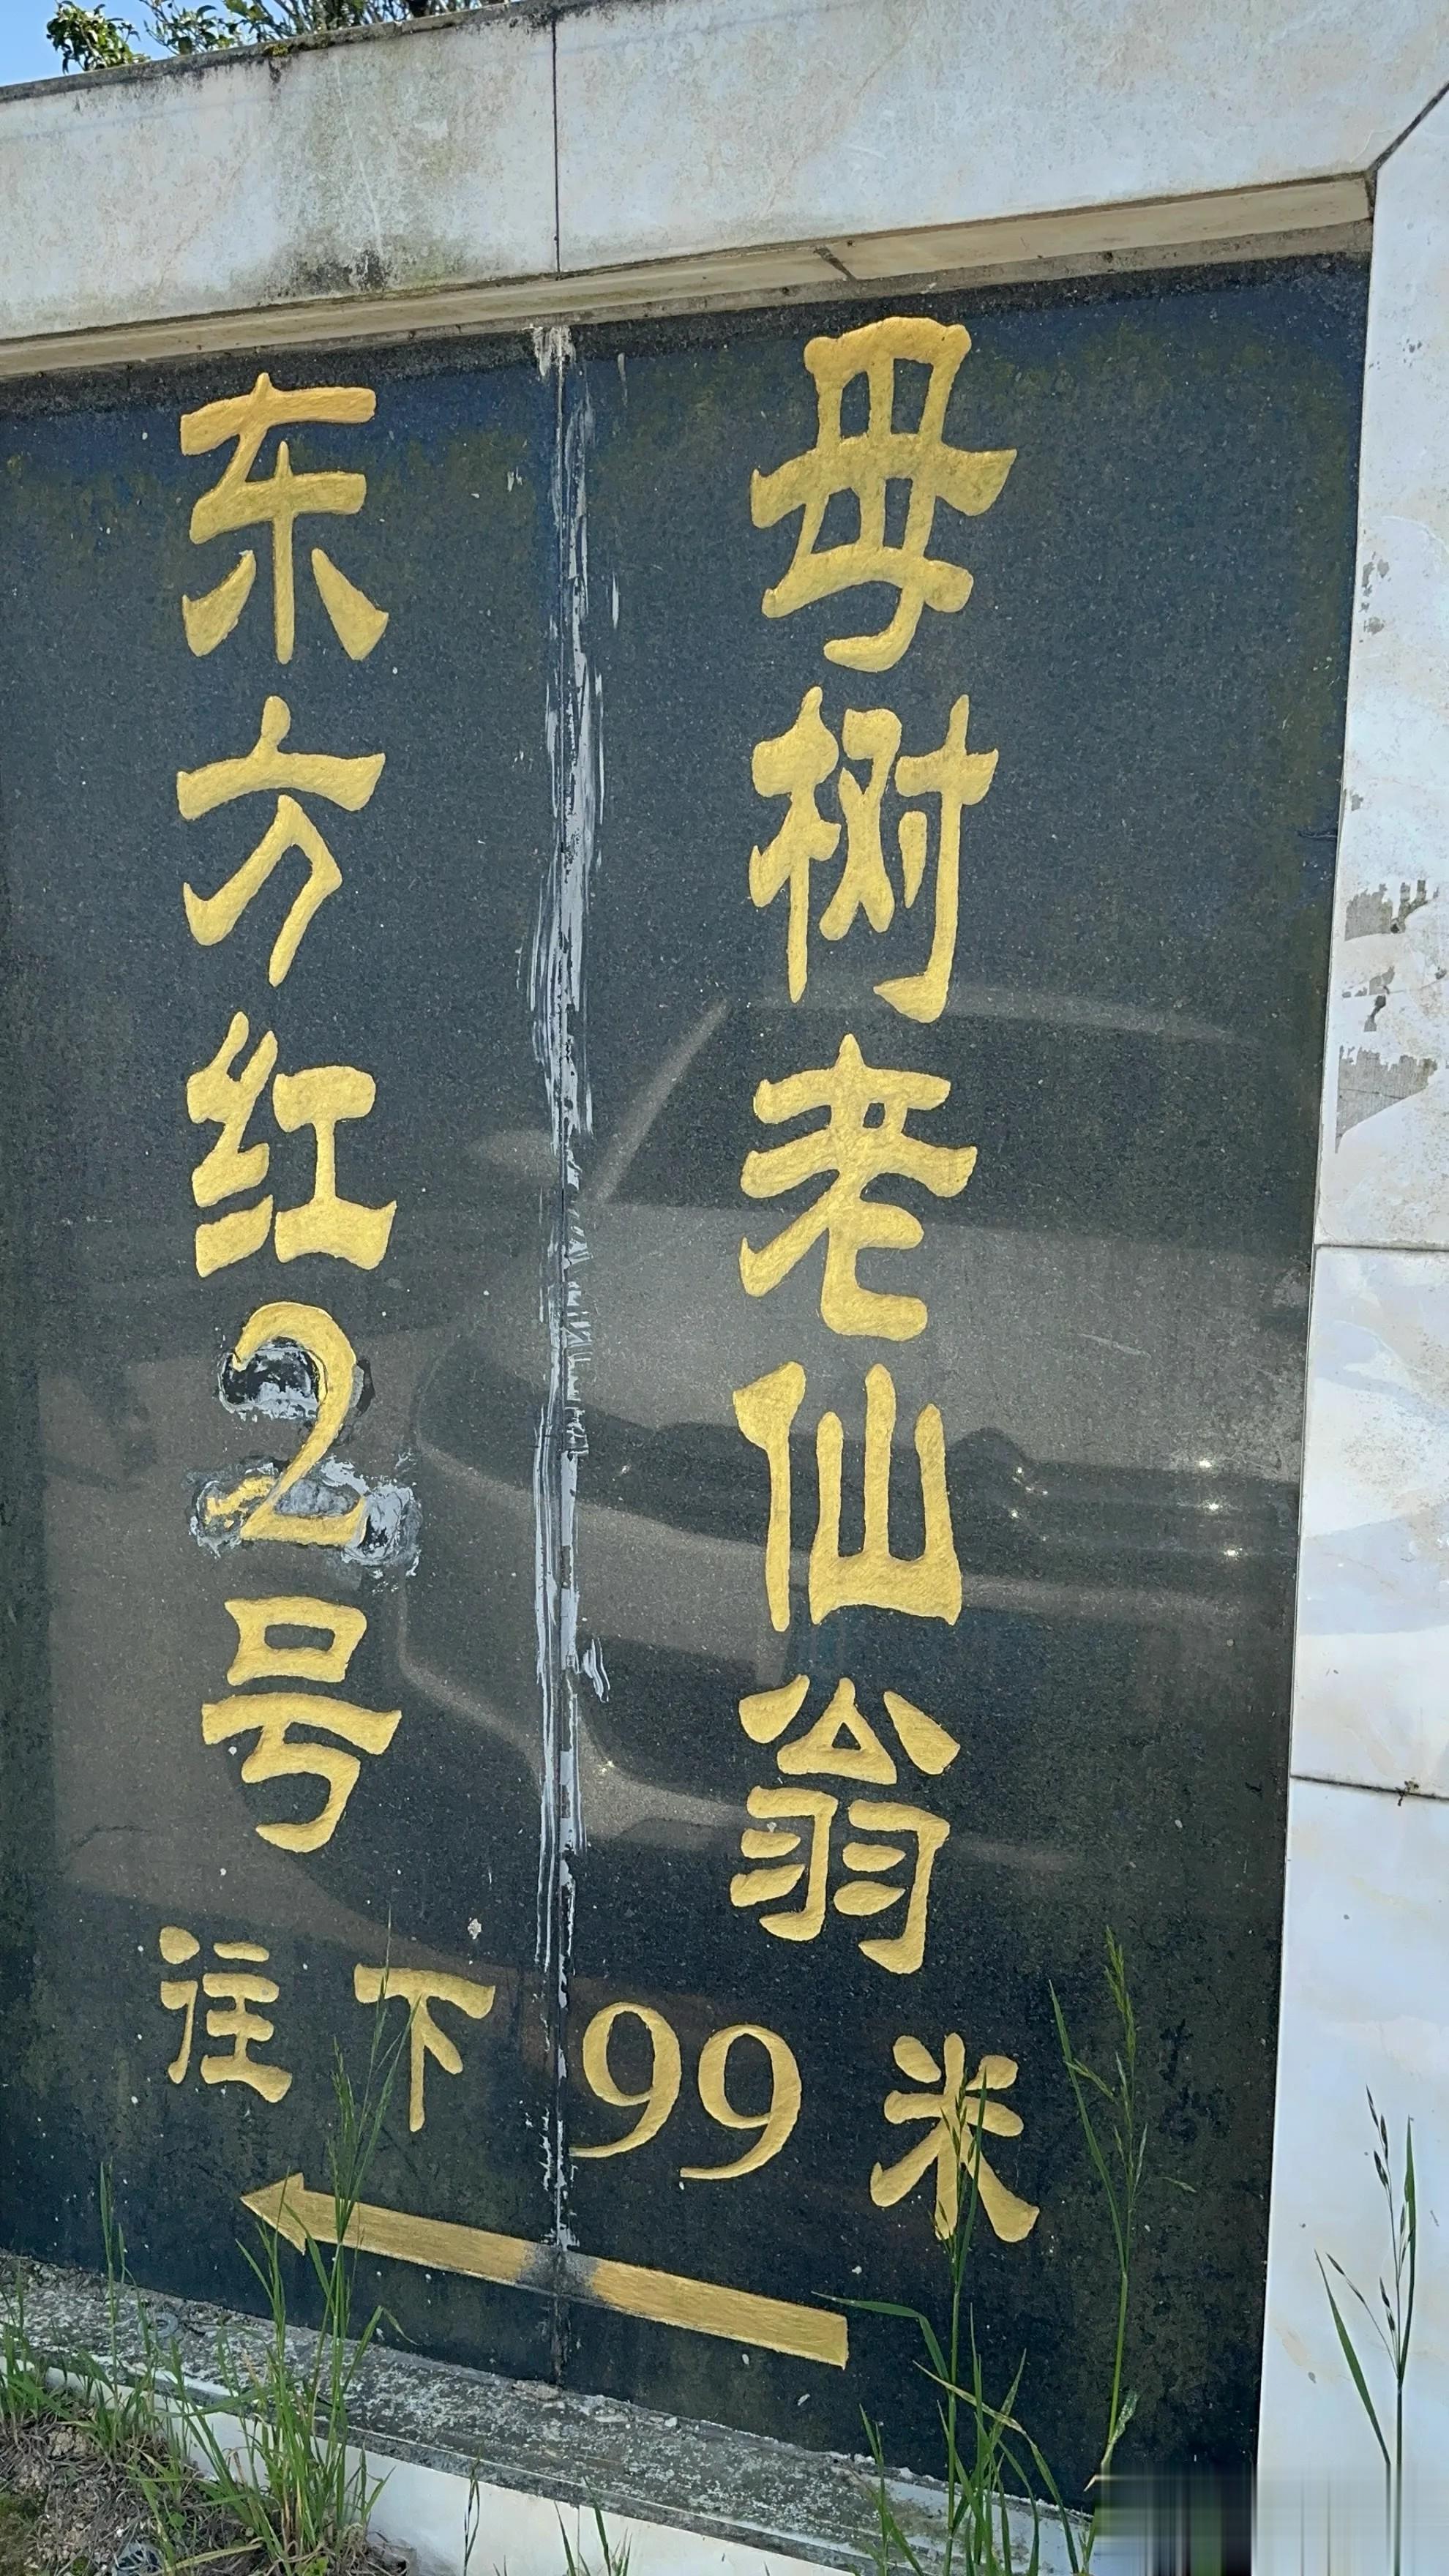 母树老仙翁
东方红2号
往下99米